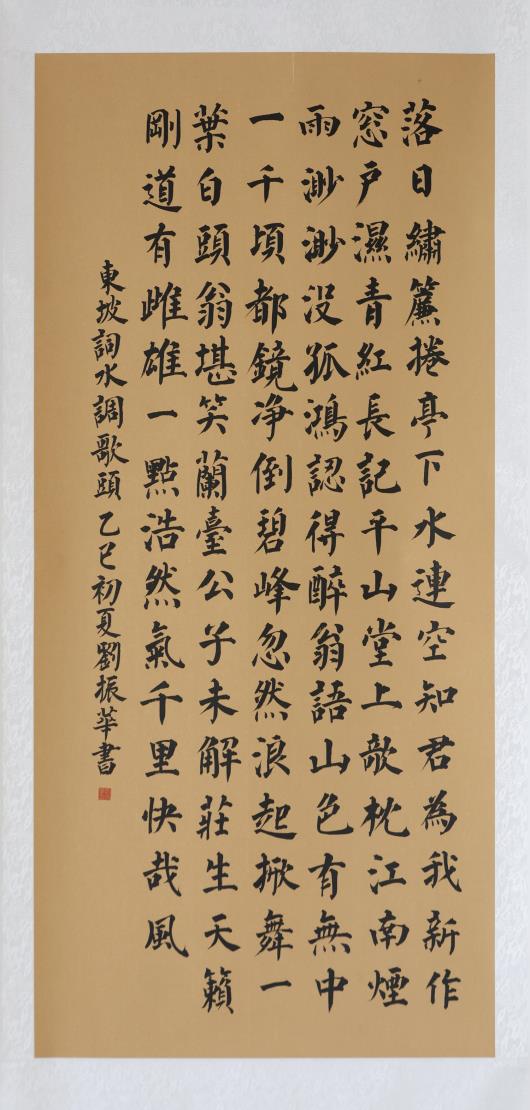 落日繡簾捲亭下水連空知君為我新作
窓戶濕青紅長記平山堂上欹枕江南煙
雨渺渺没孤鴻認得醉翁語山色有無中
一千頃都鏡净倒碧峰忽然浪起掀舞一
葉白頭翁堪笑蘭臺公子未解莊生天籟
剛道有雌雄一點浩然氣千里快哉風
東坡詞水調歌頭 乙巳初夏劉振華書